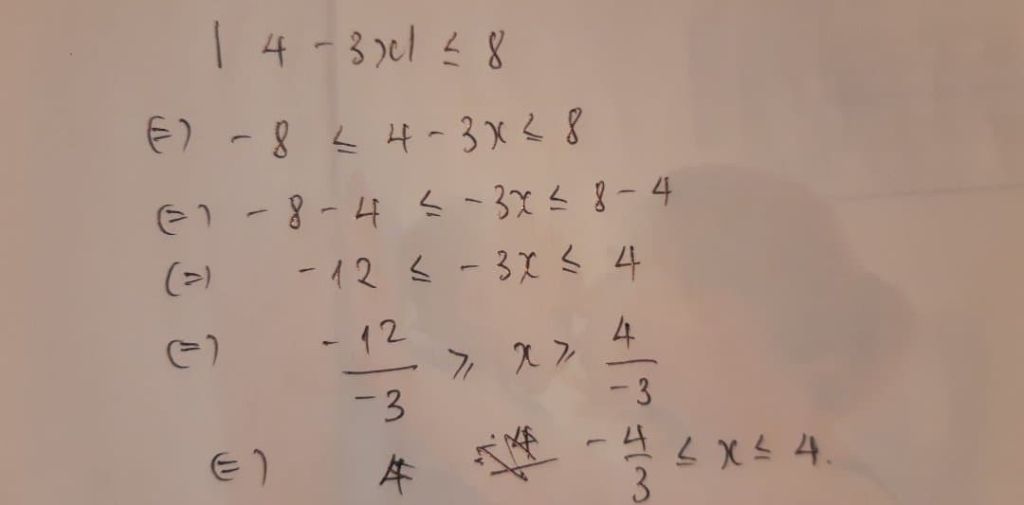 | 4 - 3x| ≤ 8
(=) - 8 ≤ 4 - 3x ≤ 8
(=) - 8 - 4 ≤ - 3x ≤ 8 - 4
(=) - 12 ≤ - 3x ≤ 4
(=) -12/-3 ⩾ x ⩾ 4/-3
(=) - 4/3 ≤ x ≤ 4.